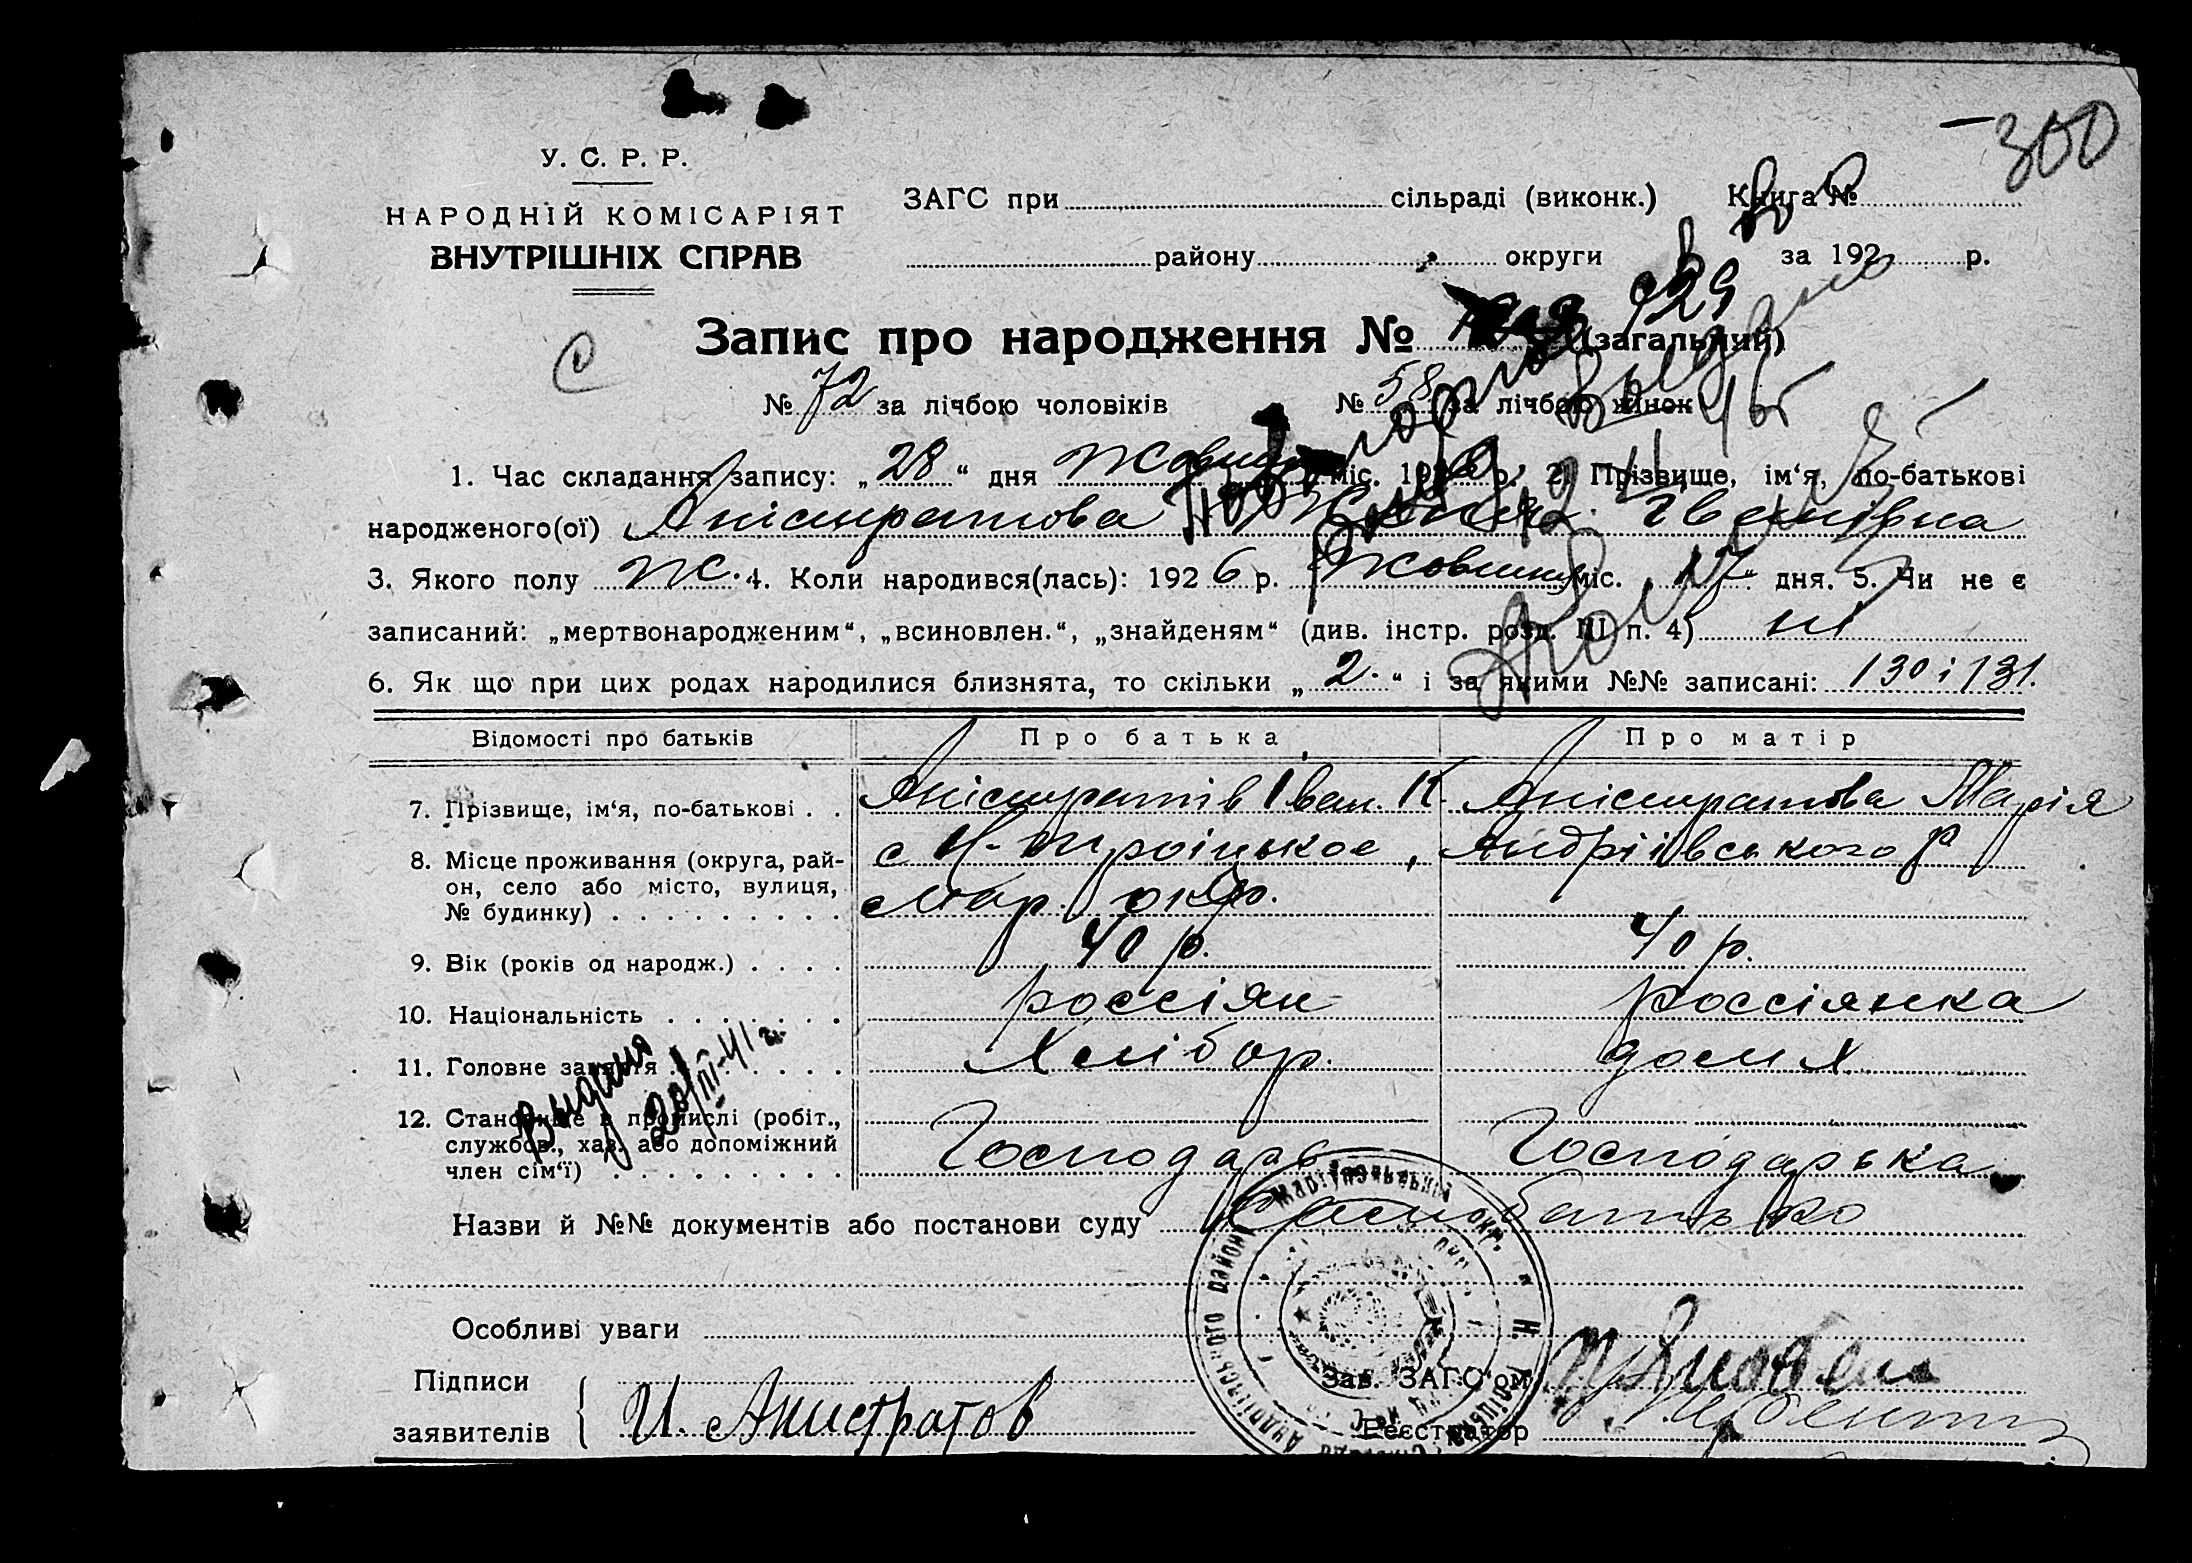 300
У. С. Р. Р.
НАРОДНІЙ КОМІСАРІЯТ
ВНУТРІШНІХ СПРАВ
ЗАГС при сільраді (виконк.) Книга №
району округи за 192 р.
Запис про народження № (загальний)
С
№ 72 за лічбою чоловіків № 58 за лічбою жінок
1. Час складання запису: „ 28 “ дня міс. 192 р. 2. Прізвище, ім‘я, по-батькові
народженого(ої) Аністратова Іванівна
3. Якого полу ж. 4. Коли народився(лась): 192 6 р. Жовтня міс. 17 “ дня. 5. Чи не є
записаний: „мертвонародженим“, „всиновлен.“, „знайденям“ (див. інстр. розд. III п. 4) ні
6. Як що при цих родах народилися близнята, то скільки „ 2. “ і за якими №№ записані: 130 і 131.
Відомості про батьків Про батька Про матір
7. Прізвище, ім‘я, по-батькові . . Аністратів Іван К Аністратова Марія
8. Місце проживання (округа, рай-
он, село або місто, вулиця,
№ будинку) . . . . . . . . .
с Н-Троіцькое, Андріівського р
Мар. окр.
9. Вік (років од народж.) . . . . 40 р. 40 р.
10. Національність . . . . . . . россіян россіянка
11. Головне заняття . . . . . . . Хлібор. дом х
Выдана
20/III-41 г.
12. Становище в промислі (робіт.,
службов., хаз. або допоміжний
член сім‘ї) . . . . . . . . .
Господарь Господарька
Назви й №№ документів або постанови суду Сам батько
Особливі уваги
Підписи
заявителів
И. Анистратов
Зав. ЗАГС‘ом
Реєстратор
Маріупольської окр.
району